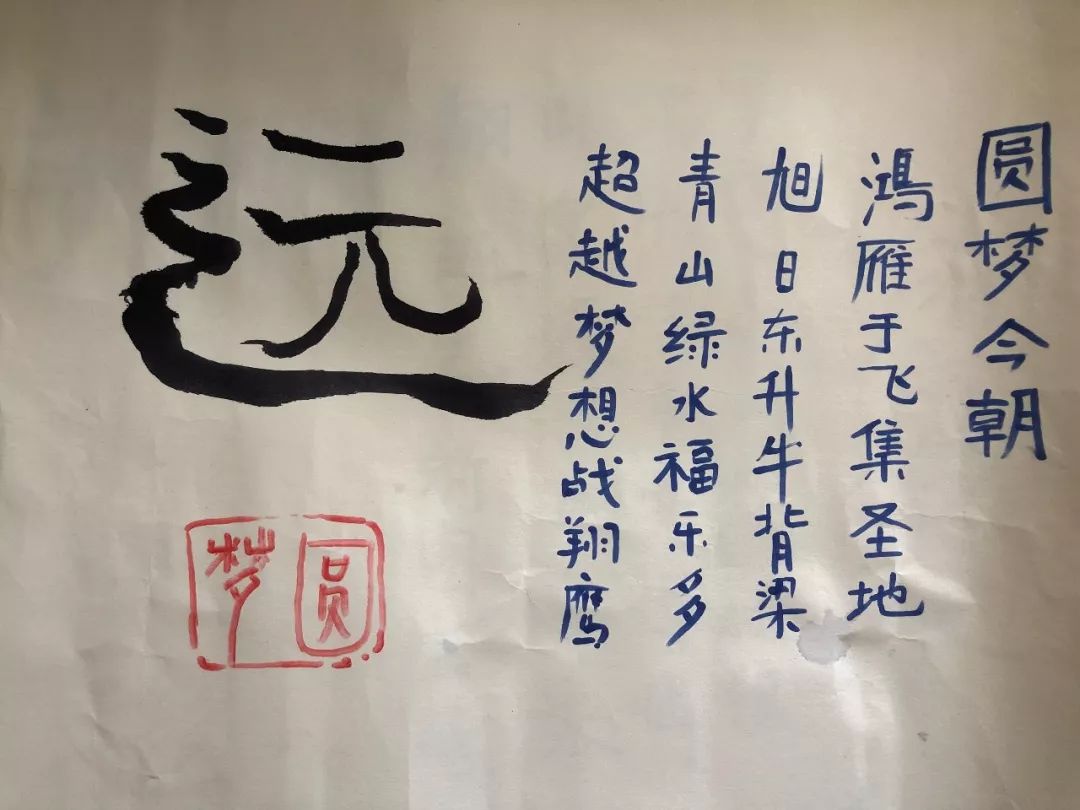 圆梦今朝
鸿雁于飞集圣地
旭日东升牛背梁
青山绿水福乐多
超越梦想战翔鹰
远
圆梦